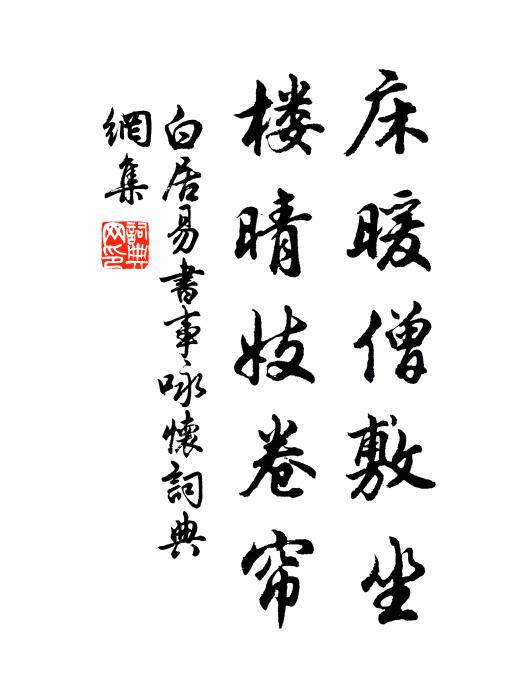 床暖僧敷坐
楼晴妓卷帘
白居易書事咏懷詞典
網集
詞典
网印